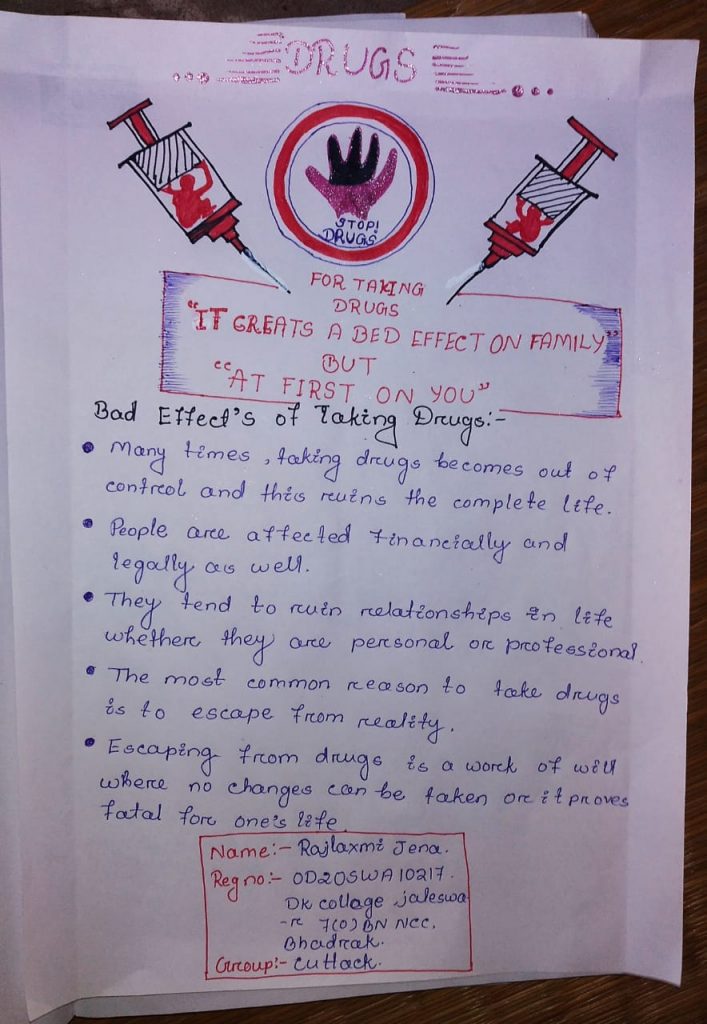 DRUGS
STOP!
DRUGS
FOR TAKING
DRUGS
"IT GREATS A BED EFFECT ON FAMILY"
BUT
"AT FIRST ON YOU"
Bad Effect's of Taking Drugs:-
• Many times, taking drugs becomes out of
control and this ruins the complete life.
• People are affected financially and
legally as well.
• They tend to ruin relationships in life
whether they are personal or professional.
• The most common reason to take drugs
is to escape from reality.
• Escaping from drugs is a work of will
where no changes can be taken or it proves
fatal for one's life.
Name:- Rajlaxmi Jena.
Reg no:- OD20SWA10217.
Dk collage jaleswa
-r 7(O) BN NCC,
Bhadrak.
Group:- Cuttack.